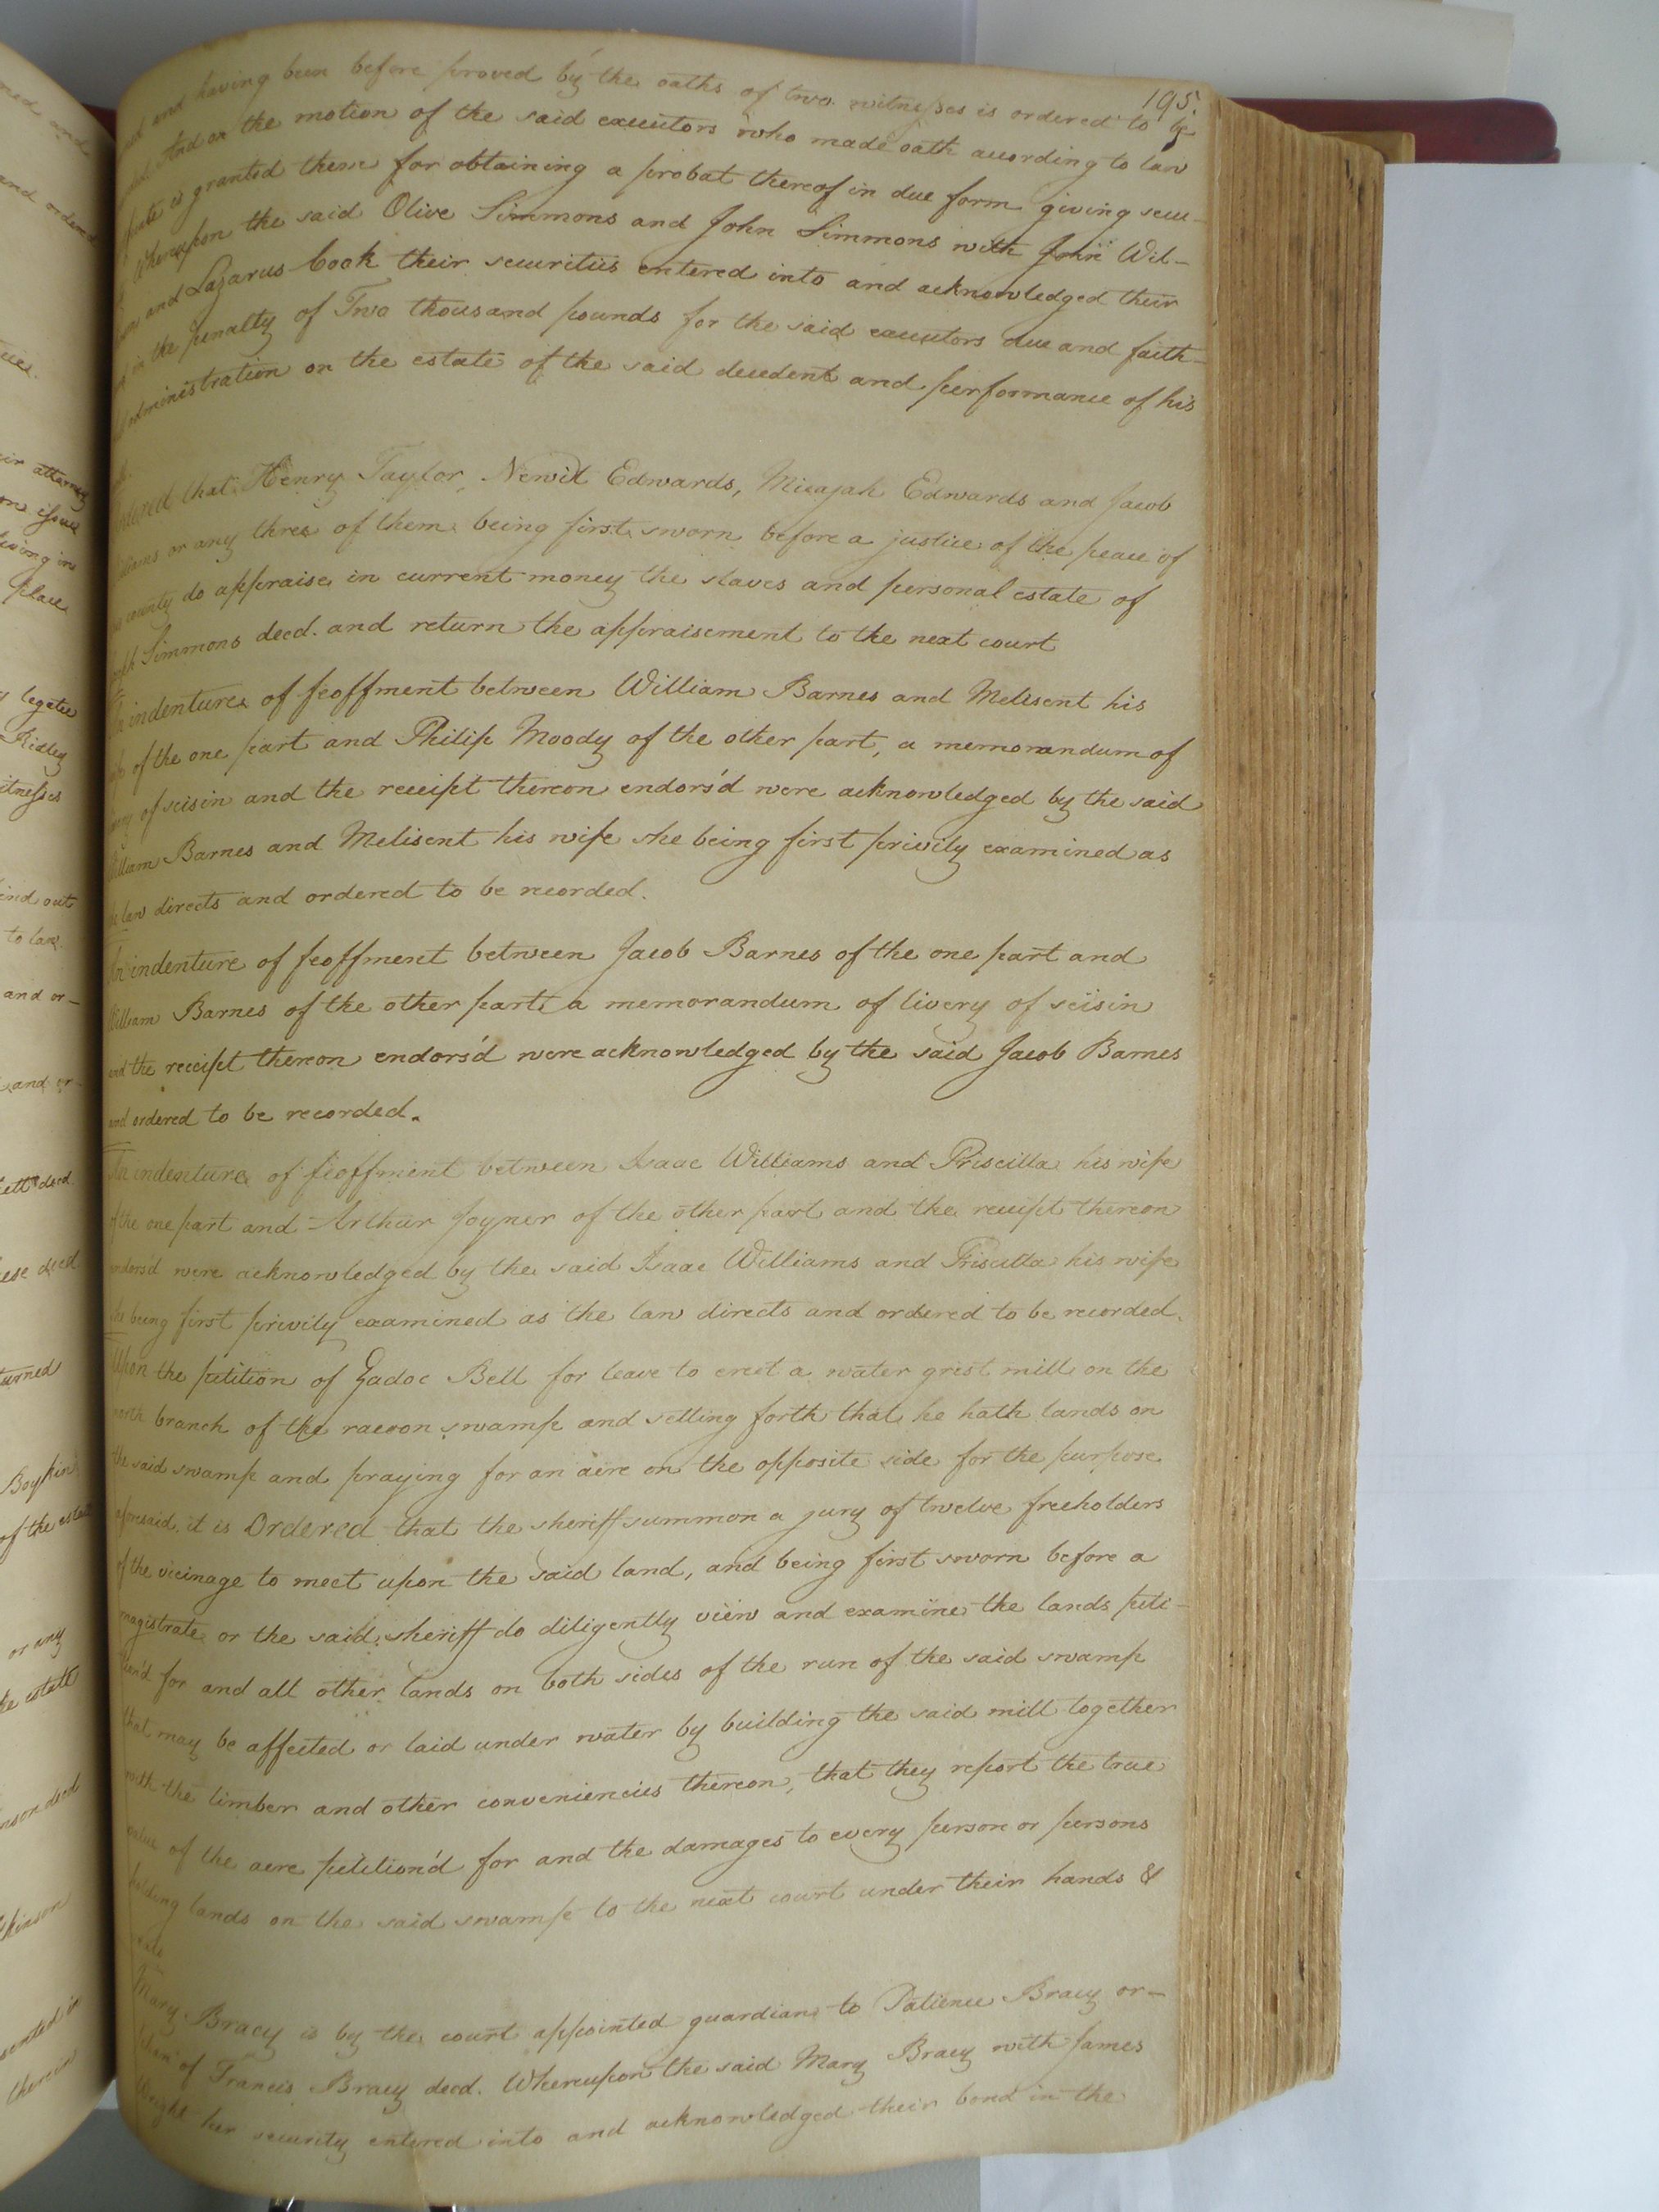 195.
and having been before proved by the oaths of two witnesses is ordered to be
And on the motion of the said executors who made oath according to law
is granted them for obtaining a probat thereof in due form giving secu-
Whereupon the said Olive Simmons and John Simmons with John Wil-
and Lazarus Cook their securities entered into and acknowledged their
in the penalty of Two thousand pounds for the said executors due and faith-
administration on the estate of the said decedent and performance of his
ordered that Henry Taylor, Newit Edwards, Micajah Edwards and Jacob
Williams or any three of them being first sworn before a justice of the peace of
county do appraise in current money the slaves and personal estate of
Simmons deced. and return the appraisement to the next court
indenture of feoffment between William Barnes and Melisent his
of the one part and Philip Moody of the other part, a memorandum of
of seisin and the receipt thereon endors'd were acknowledged by the said
William Barnes and Melisent his wife she being first privily examined as
the law directs and ordered to be recorded.
An indenture of feoffment between Jacob Barnes of the one part and
William Barnes of the other part a memorandum of livery of seisin
and the receipt thereon endors'd were acknowledged by the said Jacob Barnes
and ordered to be recorded.
An indenture of feoffment between Isaac Williams and Priscilla his wife
of the one part and Arthur Joyner of the other part and the receipt thereon
endors'd were acknowledged by the said Isaac Williams and Priscilla his wife
she being first privily examined as the law directs and ordered to be recorded.
Upon the petition of Zadoc Bell for leave to erect a water grist mill on the
north branch of the racoon swamp and setting forth that he hath lands on
the said swamp and praying for an acre on the opposite side for the purpose
aforesaid, it is Ordered that the sheriff summon a jury of twelve freeholders
of the vicinage to meet upon the said land, and being first sworn before a
magistrate or the said sheriff do diligently view and examine the lands peti-
tion'd for and all other lands on both sides of the run of the said swamp
that may be affected or laid under water by building the said mill together
with the timber and other conveniencies thereon, that they report the true
value of the acre petition'd for and the damages to every person or persons
holding lands on the said swamp to the next court under their hands &
Mary Bracy is by the court appointed guardian to Patience Bracy or-
phan of Francis Bracy deced. Whereupon the said Mary Bracy with James
Wright her security entered into and acknowledged their bond in the